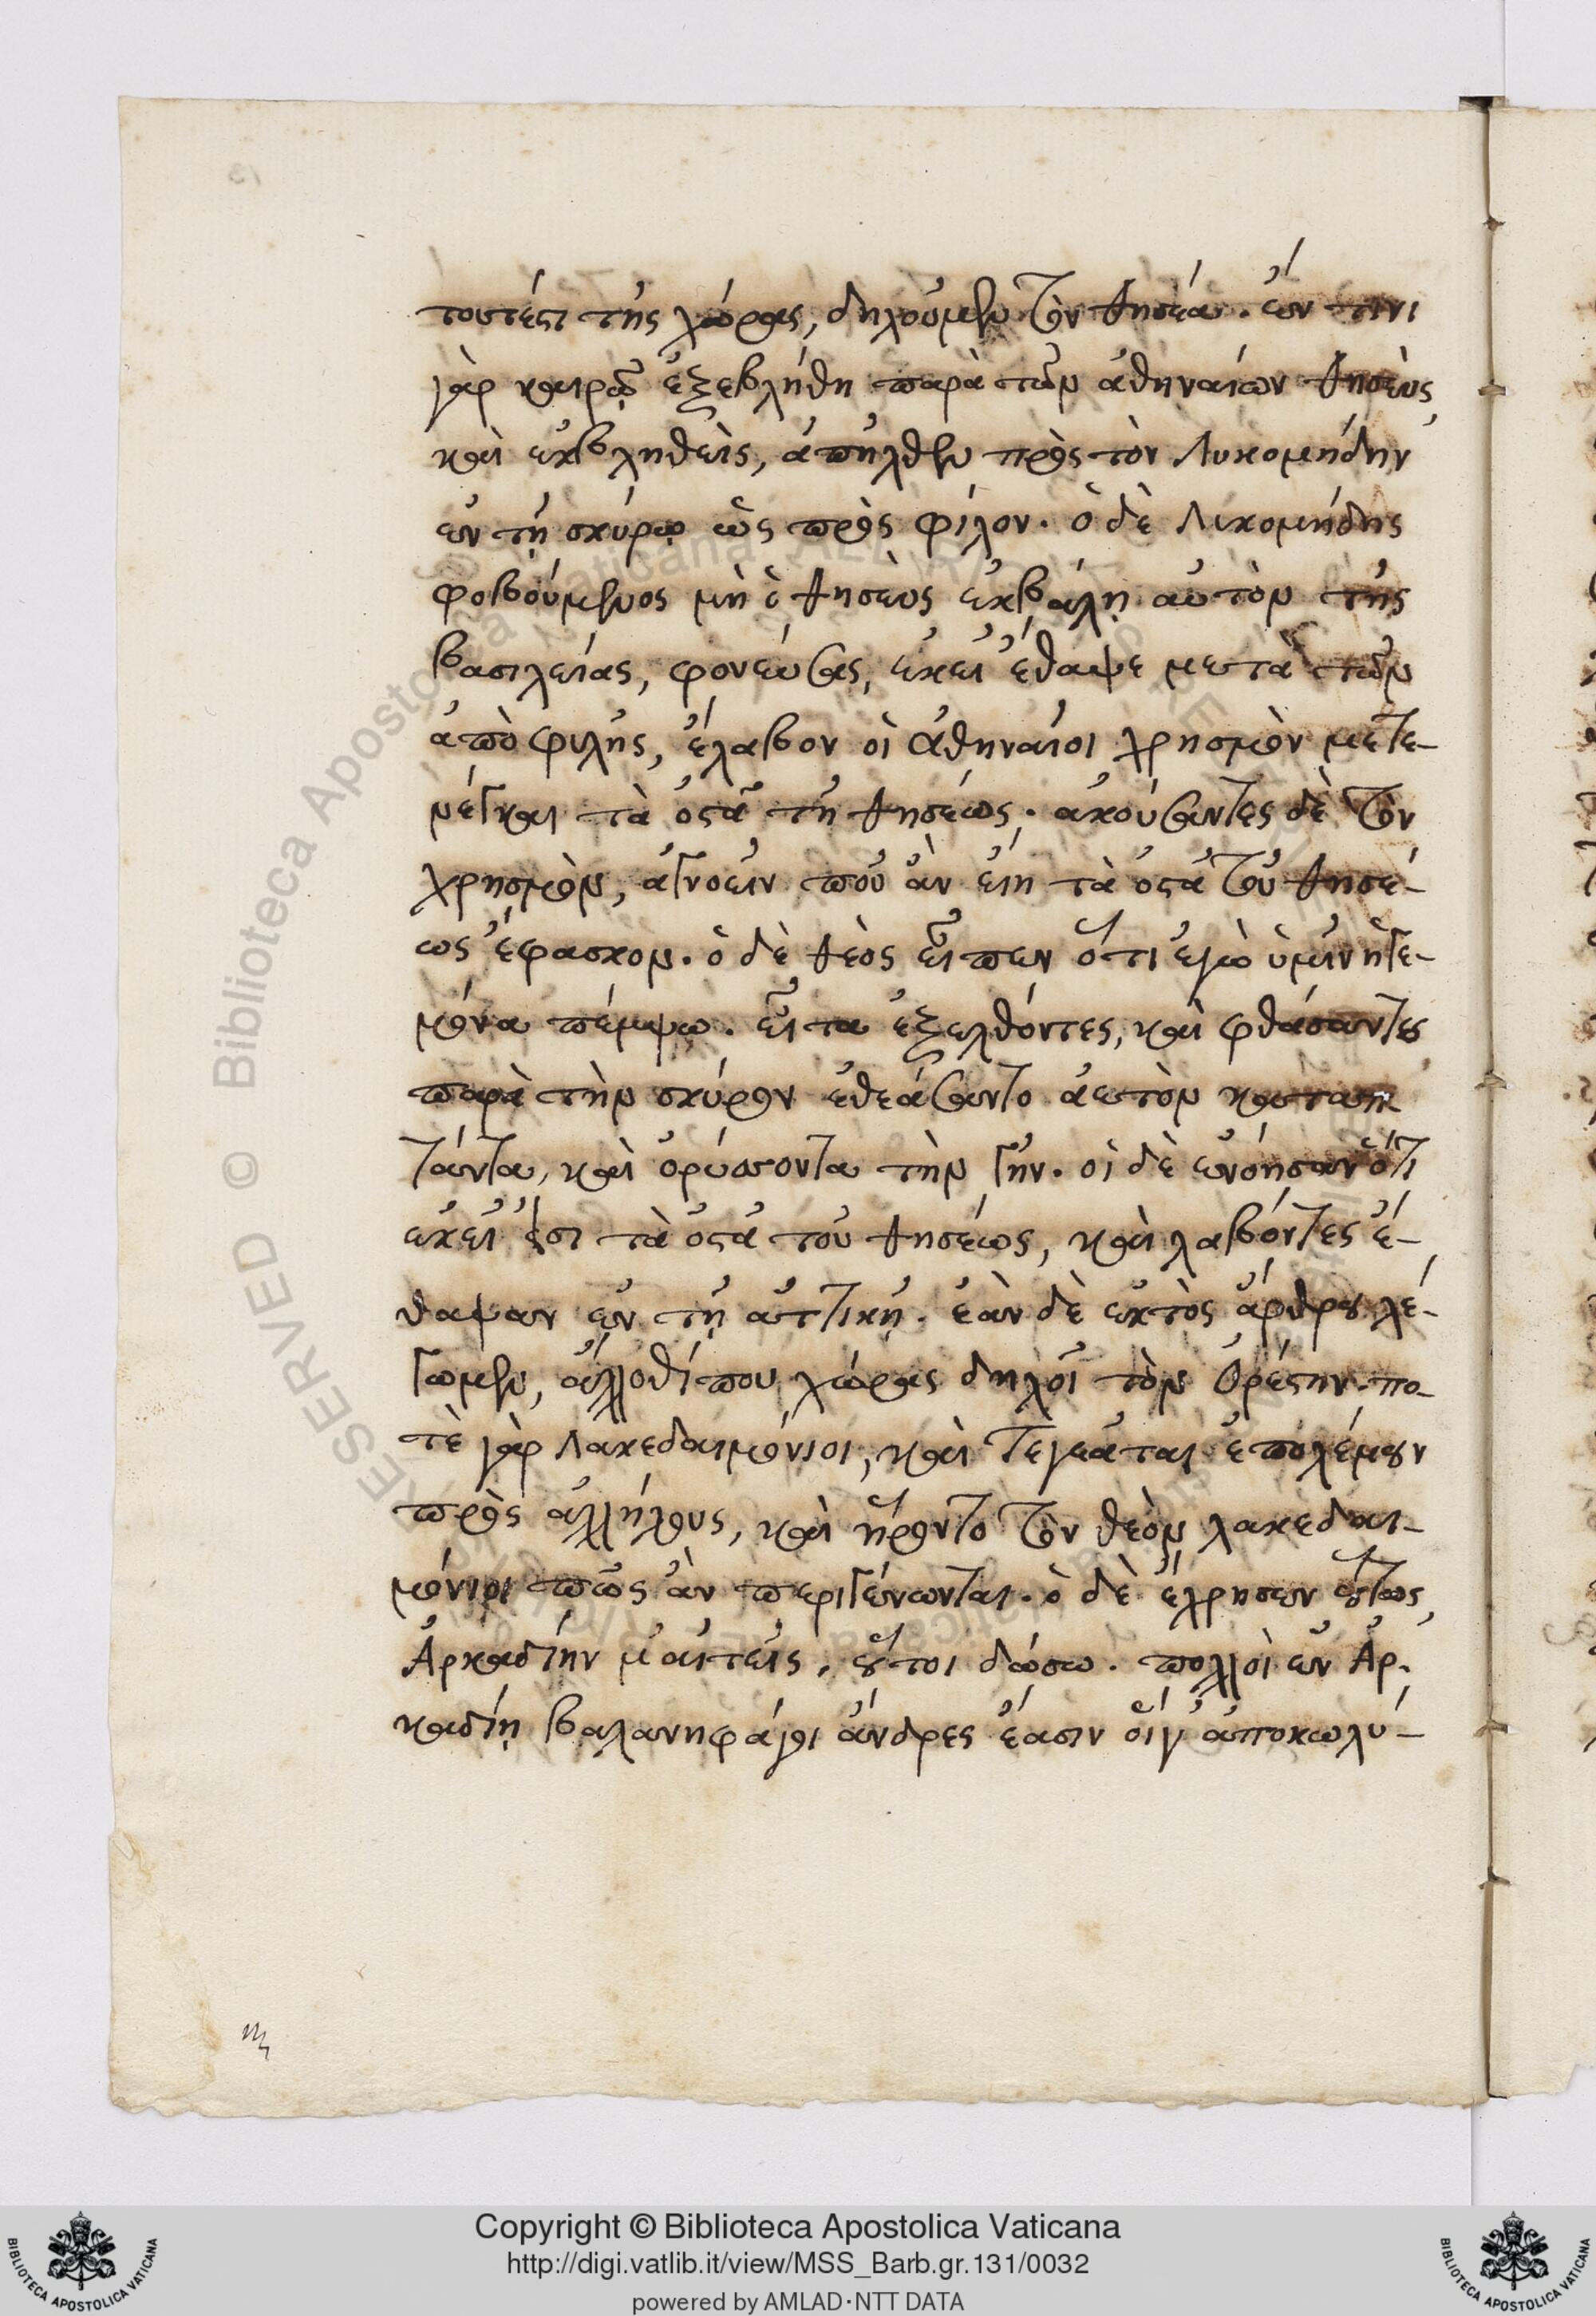 τουτέστι τῆς χώρας, δηλοῦμεν τὸν θησέα. ἔν τινι
γὰρ καιρῷ ἐξεβλήθη παρὰ τῶν ἀθηναίων θησεὺς,
καὶ ἐκβληθεὶς, ἀπῆλθεν πρὸς τὸν Λυκομήδην
ἐν τῇ σκύρῳ ὡς πρὸς φίλον. ὁ δὲ Λικομήδης
φοβούμενος μὴ ὁ θησεὺς ἐκβάλῃ αὐτὸν τῆς
βασιλείας, φονεύσας, ἐκεῖ ἔθαψε μετὰ τῶν
ἀπὸ φυλῆς, ἔλαβον οἱ ἀθηναῖοι χρησμὸν μετε-
νέγκαι τὰ ὀστᾶ τοῦ θησέως. ἀκούσαντες δὲ τὸν
χρησμὸν, ἀγνοεῖν ποῦ ἂν εἴη τὰ ὀστᾶ τοῦ θησέ-
ως ἔφασκον. ὁ δὲ θεὸς εἶπεν ὅτι ἐγὼ ὑμῖν ἡγε-
μόνα πέμψω. εἶτα ἐξελθόντες, καὶ φθάσαντες
παρὰ τὴν σκύρον ἐθεάσαντο ἀετὸν καταπ-
τάντα, καὶ ὀρύσσοντα τὴν γῆν. οἱ δὲ ἐνόησαν ὅτι
ἐκεῖ ἐστι τὰ ὀστᾶ τοῦ θησέως, καὶ λαβόντες ἔ-
θαψαν ἐν τῇ ἀττικῇ. ἐὰν δὲ ἐκτὸς ἄρθρου λέ-
γωμεν, ἀλλοθί που χώρας δηλοῖ τὸν Ὀρέστην. πο-
τὲ γὰρ Λακεδαιμόνιοι, καὶ Τεγεάται ἐπολέμουν
πρὸς ἀλλήλους, καὶ ἤροντο τὸν θεὸν λακεδαι-
μόνιοι πῶς ἂν περιγένωνται. ὁ δὲ ἔχρησεν οὕτως,
Ἀρκαδίην μ' αἰτεῖς, οὔ τοι δώσω. πολλοὶ ἐν Ἀρ-
καδίῃ βαλανηφάγοι ἄνδρες ἔασιν οἵ γ' ἀποκωλύ-
Copyright © Biblioteca Apostolica Vaticana
http://digi.vatlib.it/view/MSS_Barb.gr.131/0032
powered by AMLAD·NTT DATA